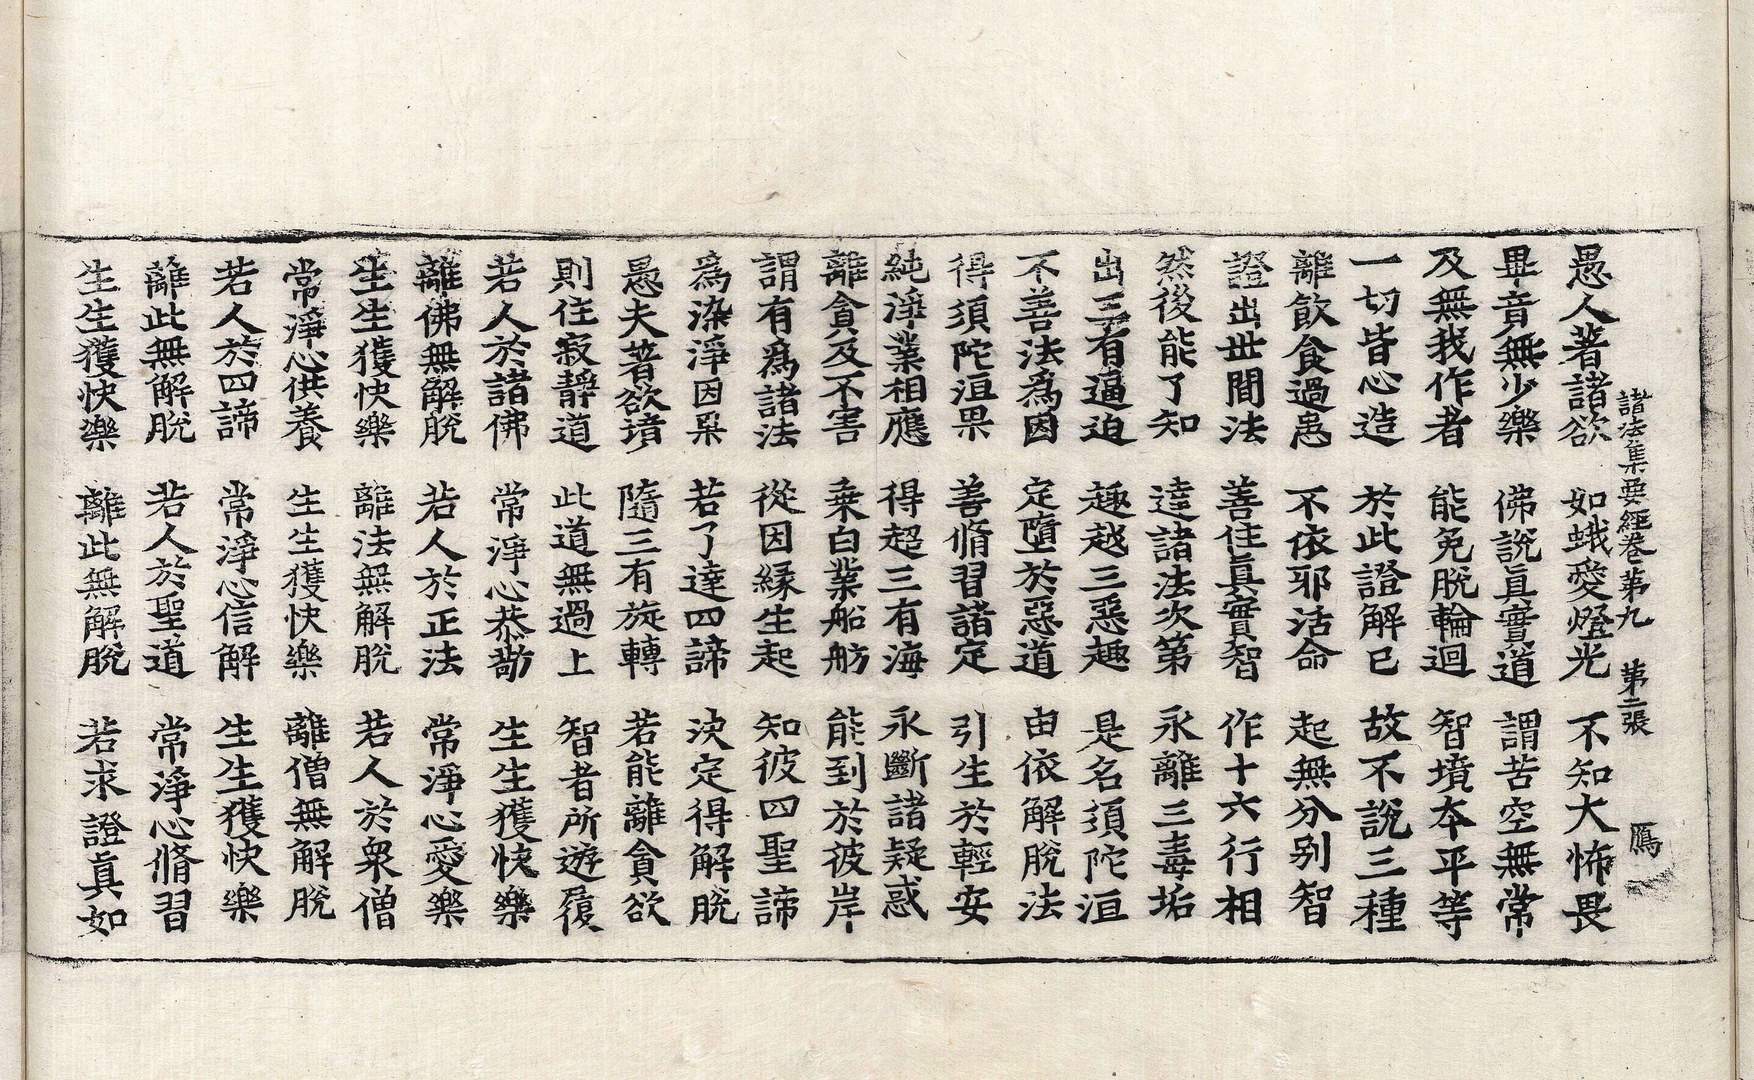 諸法集要經卷第九　第二張　鴈
愚人著諸欲　如蛾愛燈光　不知大怖畏
畢竟無少樂　佛說眞實道　謂苦空無常
及無我作者　能免脫輪迴　智境本平等
一切皆心造　於此證解已　故不說三種
離飲食過患　不依耶活命　起無分別智
證出世間法　善住眞實智　作十六行相
然後能了知　達諸法次第　永離三毒垢
出三有逼迫　趣越三惡趣　是名須陀洹
不善法爲因　定墮於惡道　由依解脫法
得須陀洹果　善脩習諸定　引生於輕安
純淨業相應　得超三有海　永斷諸疑惑
離貪及不害　乗白業船舫　能到於彼岸
謂有爲諸法　從因緣生起　知彼四聖諦
爲染淨因果　若了達四諦　決定得解脫
愚夫著欲境　隨三有旋轉　若能離貪欲
則住寂靜道　此道無過上　智者所遊履
若人於諸佛　常淨心恭敬　生生獲快樂
離佛無解脫　若人於正法　常淨心愛樂
生生獲快樂　離法無解脫　若人於衆僧
常淨心供養　生生獲快樂　離僧無解脫
若人於四諦　常淨心信解　生生獲快樂
離此無解脫　若人於聖道　常淨心脩習
生生獲快樂　離此無解脫　若求證眞如